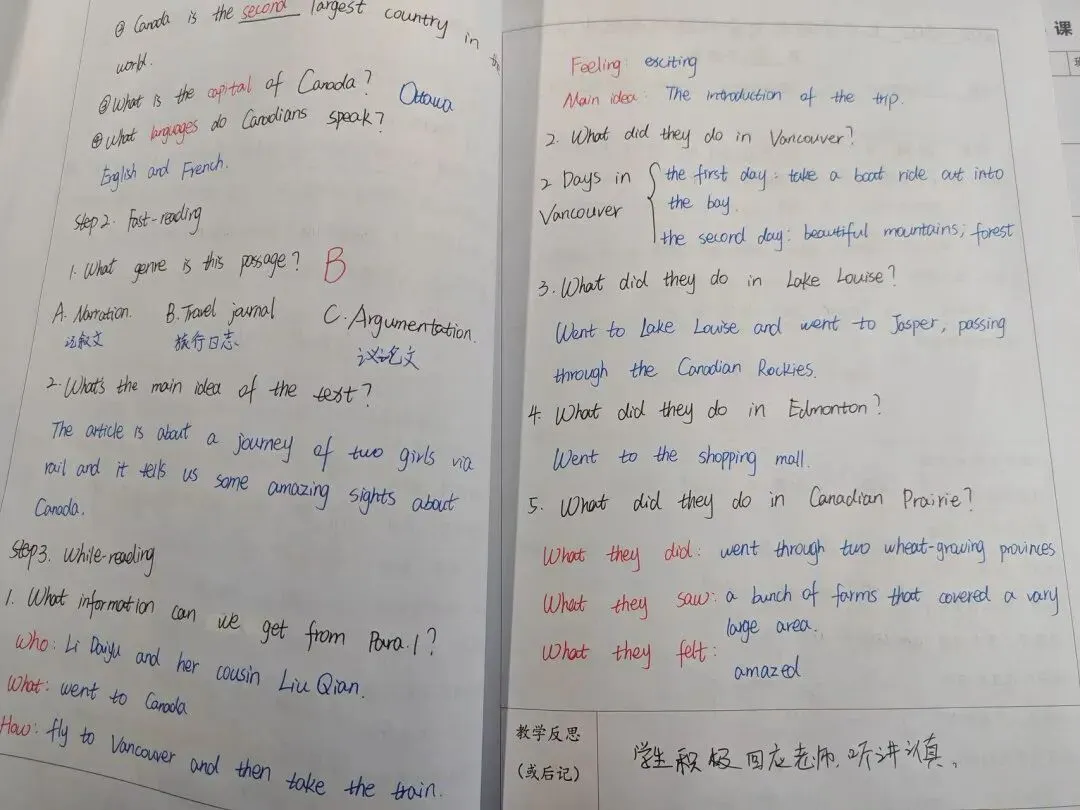 ② Canada is the second largest country in the
world.
③ What is the capital of Canada? Ottawa
④ What languages do Canadians speak?
English and French.
Step 2. Fast-reading
1. What genre is this passage? B
A. Narration. B. Travel journal C. Argumentation.
记叙文 旅行日志 议论文
2. What's the main idea of the text?
The article is about a journey of two girls via
rail and it tells us some amazing sights about
Canada.
Step3. While-reading
1. What information can we get from Para.1?
Who: Li Daiyu and her cousin Liu Qian.
What: went to Canada
How: fly to Vancouver and then take the train.
Feeling: exciting
Main idea: The introduction of the trip.
2. What did they do in Vancouver?
2 Days in Vancouver
the first day: take a boat ride out into
the bay.
the second day: beautiful mountains; forest
3. What did they do in Lake Louise?
Went to Lake Louise and went to Jasper, passing
through the Canadian Rockies.
4. What did they do in Edmonton?
Went to the shopping mall.
5. What did they do in Canadian Prairie?
What they did: went through two wheat-growing provinces
What they saw: a bunch of farms that covered a vary
large area.
What they felt:
amazed
教学反思
(或后记)
学生积极回应老师,听讲认真。
课